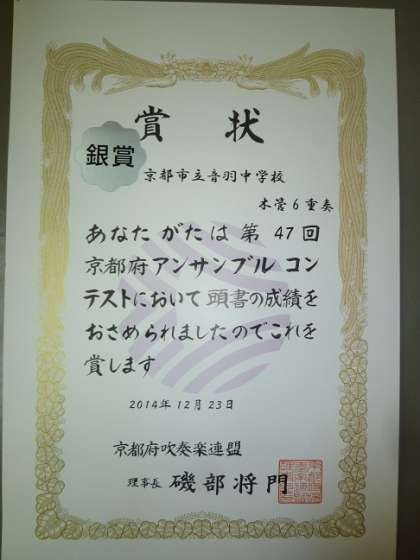 賞状
銀賞
京都市立音羽中学校
木管6重奏
あなたがたは第47回
京都府アンサンブルコン
テストにおいて頭書の成績を
おさめられましたのでこれを
賞します
2014年12月23日
京都府吹奏楽連盟
理事長 磯部将門